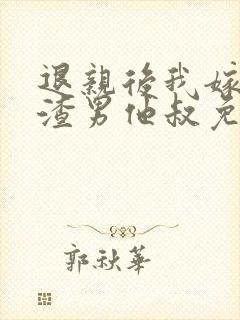 退親後我嫁
渣男他叔免
郭秋華